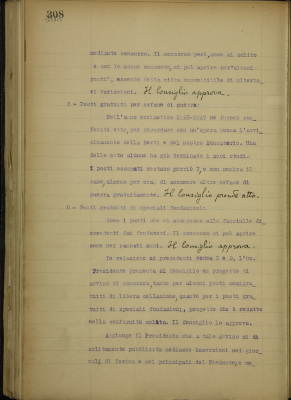 308
mediante concorso. Il concorso però, come di solito
e con le norme consuete, si può aprire per "alcuni
posti", essendo detta cifra suscettibile di ulterio-
ri variazioni. Il Consiglio approva.
C - Posti gratuiti per orfane di guerra:
Nell'anno scolastico 1918-1919 ne furono con-
feriti otto, per ricordare con un'opera buona l'avvi-
cinamento della pace e del nostro
delle otto alunne ha già terminato i suoi studi.
I posti occupati restano perciò 7, e non sembra il
caso, almeno per ora, di ammettere altre orfane di
guerra gratuitamente. Il Consiglio prende atto.
D - Posti gratuiti di speciali fondazioni:
Sono i posti che si assegnano alle fanciulle di
scendenti dai fondatori. Il concorso si può aprire
come nei passati anni. Il Consiglio approva.
In relazione ai precedenti comma 2 e D, l'On.
Presidente presenta al Consiglio un progetto di
avviso di concorso, tanto per alcuni posti semigra-
tuiti di libera collazione, quanto per i posti gra-
tuiti di speciali fondazioni, progetto che è redatto
nella conformità solita. Il Consiglio lo approva.
Aggiunge il Presidente che a tale avviso si dà
solitamente pubblicità mediante inserzioni nei gior-
nali di Torino e nei principali del Piemonte